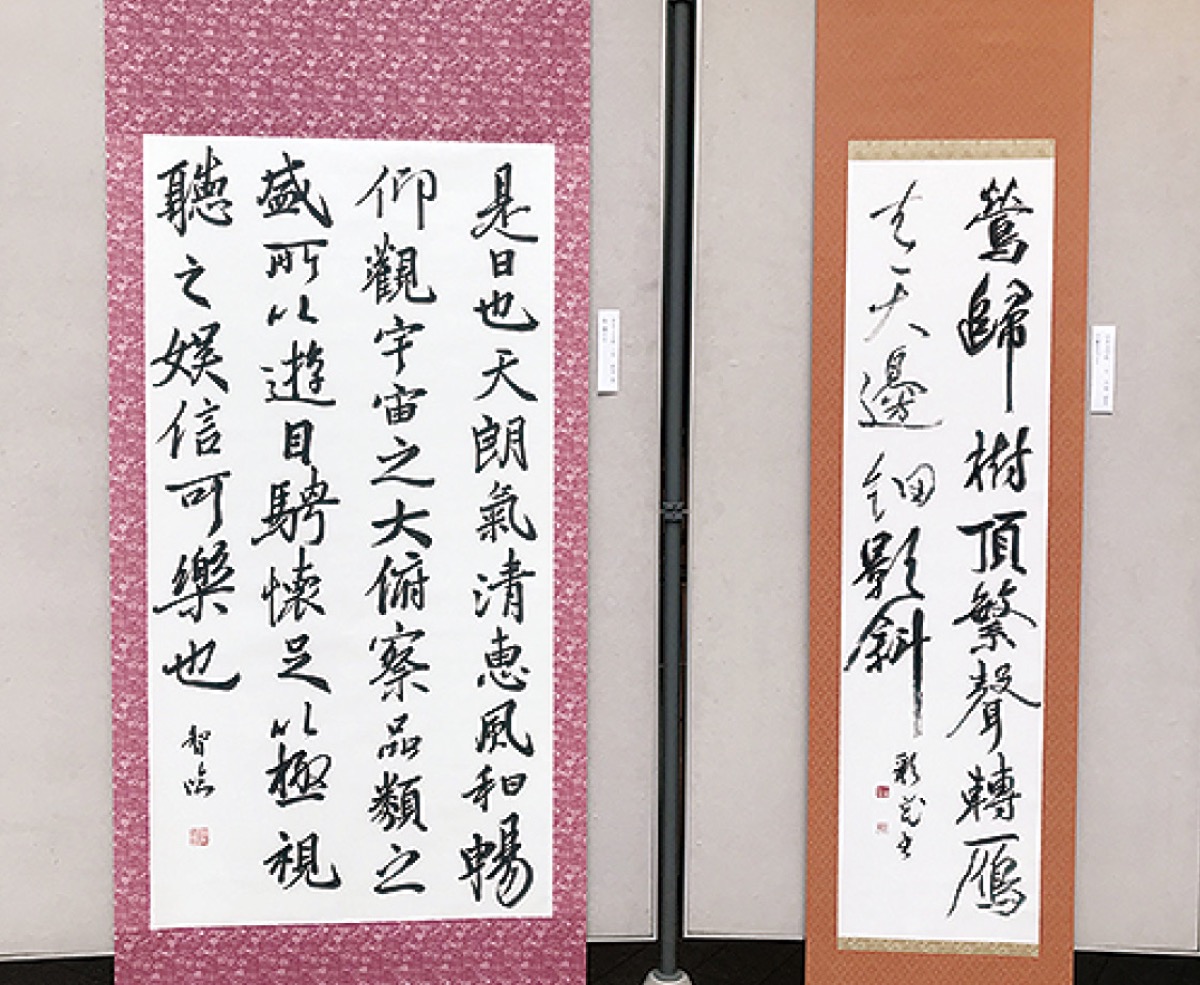 鶯歸樹頂繁聲轉雁
去天邊細影斜
是日也天朗氣清惠風和暢
仰觀宇宙之大俯察品類之
盛所以遊目騁懷足以極視
聽之娛信可樂也
智臨